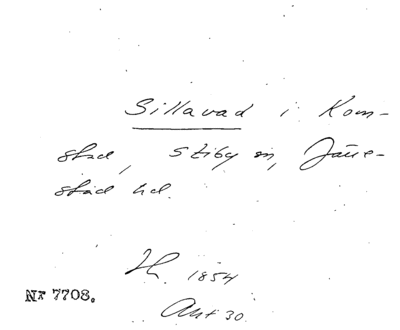 Sillavad i Kom-
stad, Stiby sn, Järre-
stad hd.
H. 1854
Ant 30.
Nr 7708.